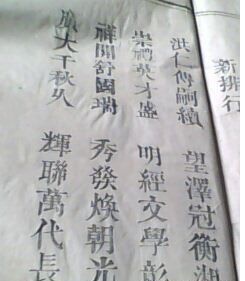 新排行
洪仁傳嗣續　望澤冠衡湘
崇禮英才盛　明經文學彰
祥開舒國瑞　秀發煥朝光
大千秋久　輝聯萬代長